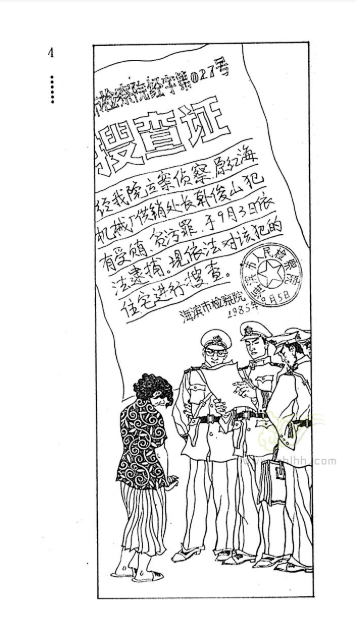 4
检察院经字第027号
搜查证
经我院立案侦察，原红海
机械厂供销处长耿俊山犯
有受贿、贪污罪，于9月3日依
法逮捕。现依法对该犯的
住宅进行搜查。
海滨市检察院
1985年
9月5日